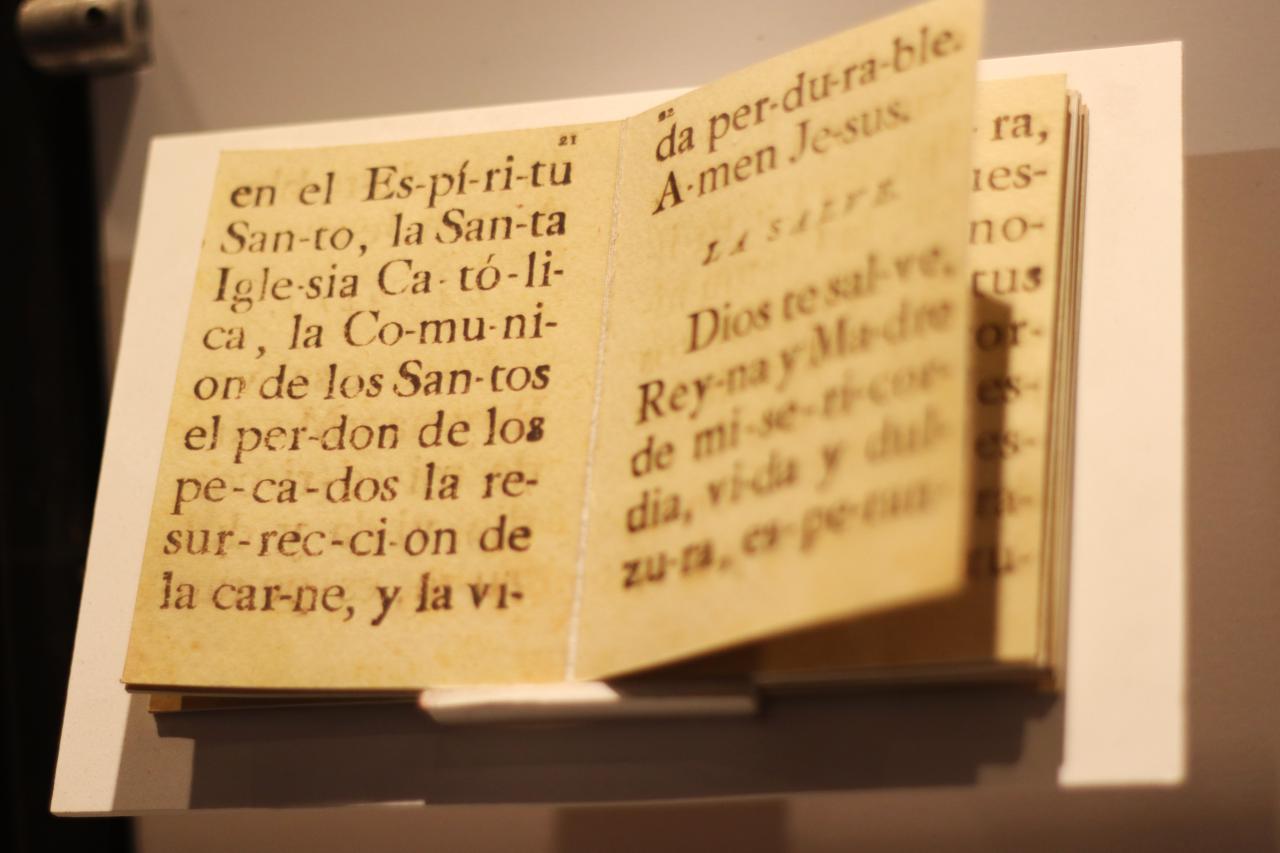 21
en el Es-pí-ri-tu
San-to, la San-ta
Igle-sia Ca-tó-li-
ca, la Co-mu-ni-
on de los San-tos
el per-don de los
pe-ca-dos la re-
sur-rec-ci-on de
la car-ne, y la vi-
22
da per-du-ra-ble.
A-men Je-sus.
LA SALVE
Dios te sal-ve,
Rey-na y Ma-dre
de mi-se-ri-cor-
dia, vi-da y dul-
zu-ra, es-pe-ran-
ra,
es-
no-
tus
or-
es-
es-
ra-